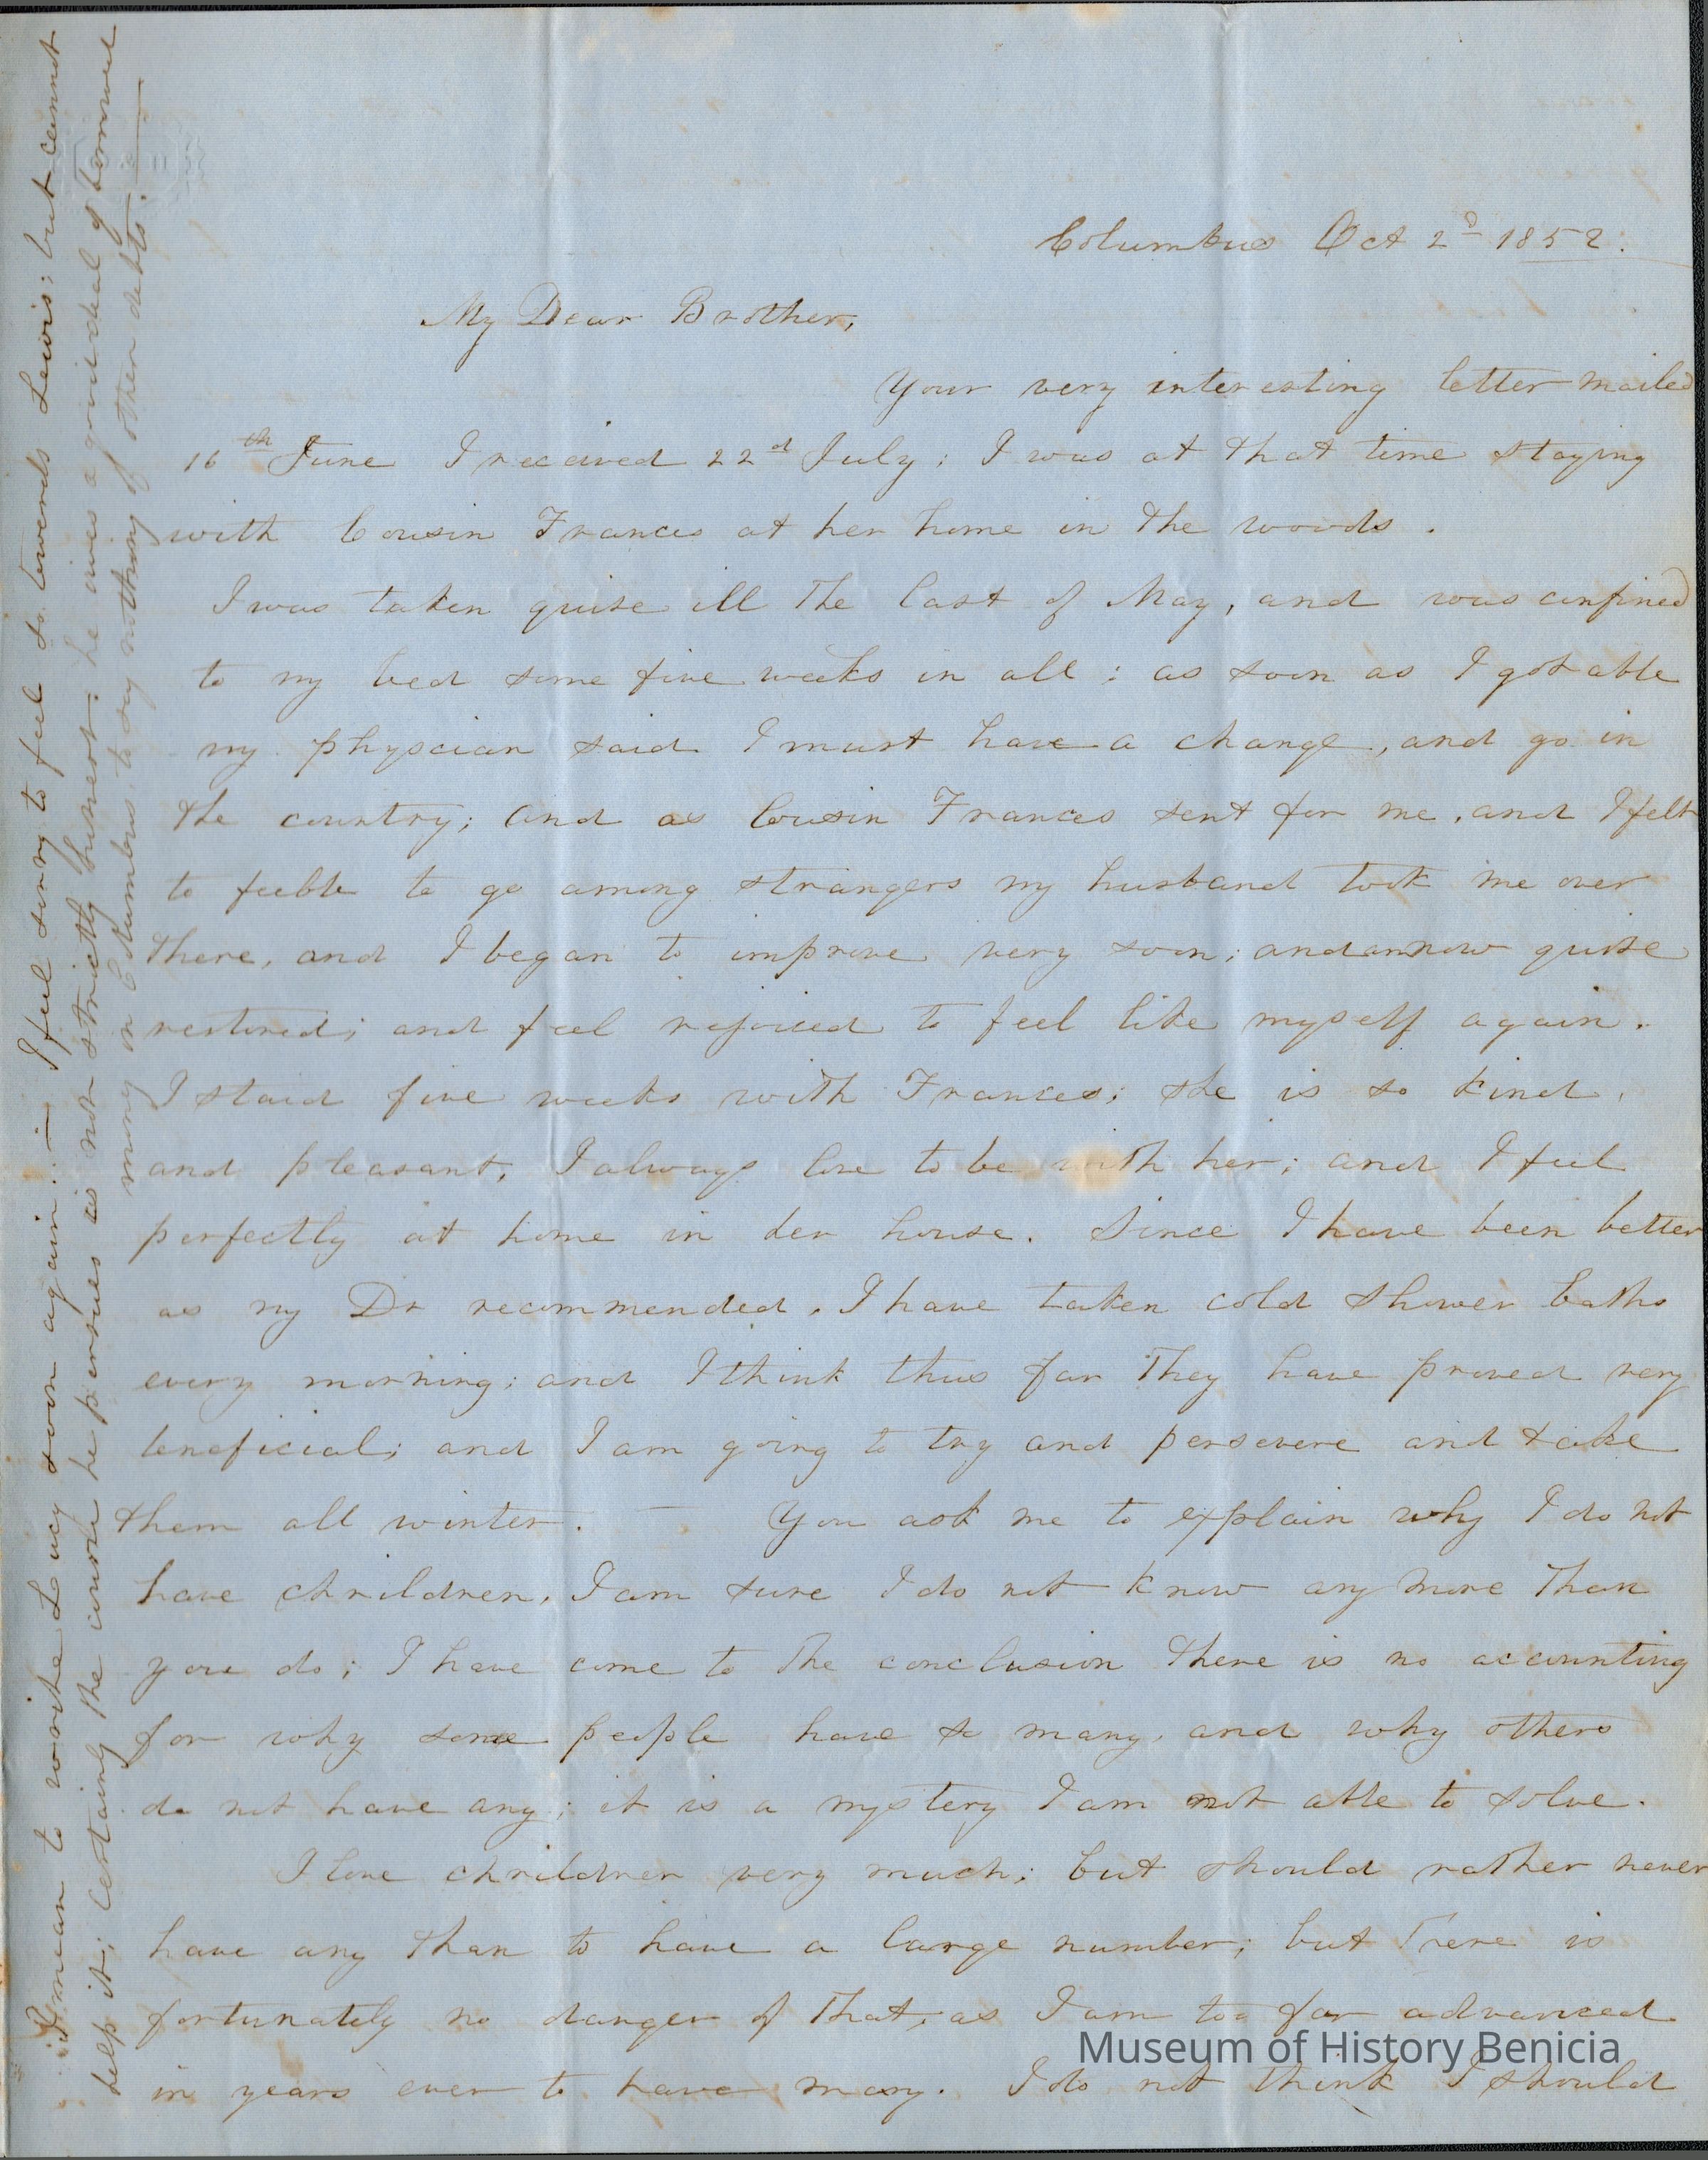 Columbus Oct 2d 1852.
My Dear Brother,
Your very interesting letter mailed
16th June I received 22d July; I was at that time staying
with Cousin Frances at her home in the woods.
I was taken quite ill the last of May, and was confined
to my bed some five weeks in all; as soon as I got able
my physcian said I must have a change, and go in
the country; and as Cousin Frances sent for me, and I felt
to feeble to go among strangers my husband took me over
there, and I began to improve very soon; and am now quite
restored; and feel rejoiced to feel like myself again.
I staid five weeks with Frances; she is so kind,
and pleasant, I always love to be with her; and I feel
perfectly at home in her house. Since I have been better
as my Dr recommended, I have taken cold shower baths
every morning; and I think thus far they have proved very
beneficial; and I am going to try and persevere and take
them all winter. — You ask me to explain why I do not
have chrildren, I am sure I do not know any more than
you do; I have come to the conclusion there is no accounting
for why some people have so many, and why others
do not have any; it is a mystery I am not able to solve.
I love chrildren very much; but should rather never
have any than to have a large number; but there is
fortunately no danger of that, as I am too far advanced
in years ever to have many. I do not think I should
I mean to write Lucy soon again. — I feel sorry to feel so towards Lewis; but cannot
help it; certainly the course he persues is not strictly honest; he owes a good deal of borrowed
money in Columbus to say nothing of other debts. —
Museum of History Benicia